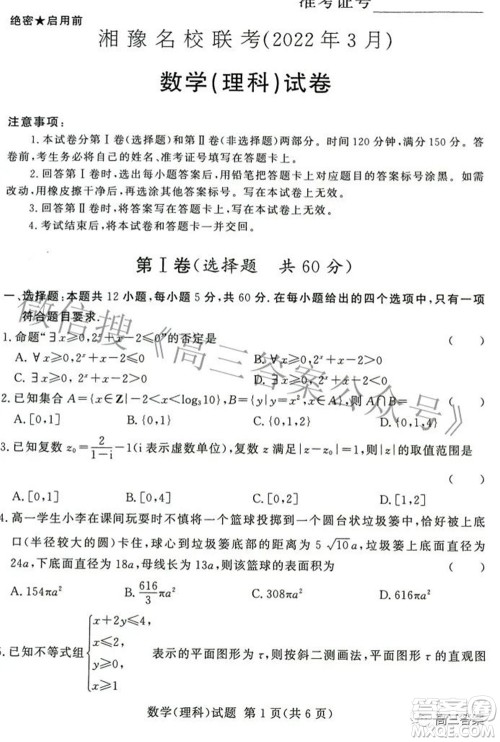 准考证号
绝密★启用前
湘豫名校联考(2022年3月)
数学(理科)试卷
注意事项:
1.本试卷分第Ⅰ卷(选择题)和第Ⅱ卷(非选择题)两部分。时间120分钟,满分150分。答
卷前,考生务必将自己的姓名、准考证号填写在答题卡上。
2.回答第Ⅰ卷时,选出每小题答案后,用铅笔把答题卡上对应题目的答案标号涂黑。如需
改动,用橡皮擦干净后,再选涂其他答案标号。写在本试卷上无效。
3.回答第Ⅱ卷时,将答案写在答题卡上,写在本试卷上无效。
4.考试结束后,将本试卷和答题卡一并交回。
第Ⅰ卷(选择题 共60分)
一、选择题:本题共12小题,每小题5分,共60分。在每小题给出的四个选项中,只有一项
符合题目要求。
1.命题“∃x≥0,2ˣ+x-2≤0”的否定是 ( )
A.∀x≥0,2ˣ+x-2≤0 B.∀x≥0,2ˣ+x-2>0
C.∃x≥0,2ˣ+x-2≥0 D.∃x≥0,2ˣ+x-2>0
2.已知集合A={x∈Z|-2<x<log₃10},B={y|y=x²,x∈A},则A∩B= ( )
A.[0,1] B.{0,1} C.[0,4] D.{0,1,4}
3.已知复数z₀=2/(1-i)-1(i表示虚数单位),复数z满足|z-z₀|=1,则|z|的取值范围是
( )
A.[0,1] B.{0,1} C.[0,2] D.{0,2}
4.高一学生小李在课间玩耍时不慎将一个篮球投掷到一个圆台状垃圾篓中,恰好被上底
口(半径较大的圆)卡住,球心到垃圾篓底部的距离为5√10a,垃圾篓上底面直径为
24a,下底面直径为18a,母线长为13a,则该篮球的表面积为 ( )
A.154πa² B.616/3πa² C.308πa² D.616πa²
5.已知不等式组{x+2y≤4, x≤2, y≤2, x≥0, y≥0 表示的平面图形为τ,则按斜二测画法,平面图形τ的直观图
数学(理科)试题 第1页(共6页)
微信搜《高三答案公众号》
高三答案